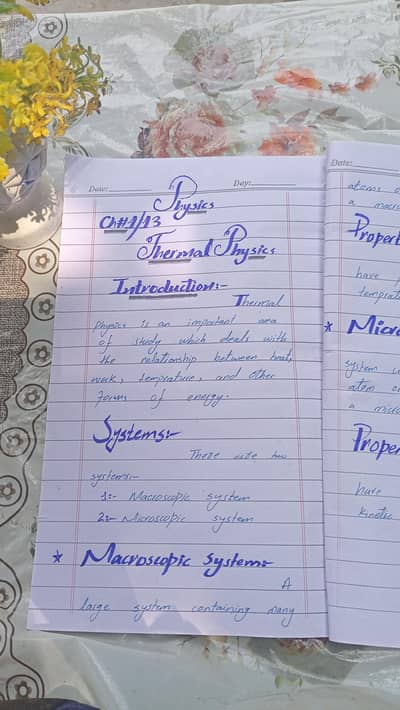 Date:
Day:
Physics
Ch#1/13
Thermal Physics
Introduction:-
Thermal
Physics is an important area
of study which deals with
the relationship between heat,
work, temprature, and other
forms of energy.
Systems:-
There are two
systems:-
1:- Macroscopic system
2:- Microscopic system
* Macroscopic System:-
A
large system containing many
Date:
atoms o
a macro
Propert
have p
temprat
* Micr
system w
atom or
a micro
Proper
have
kinetic